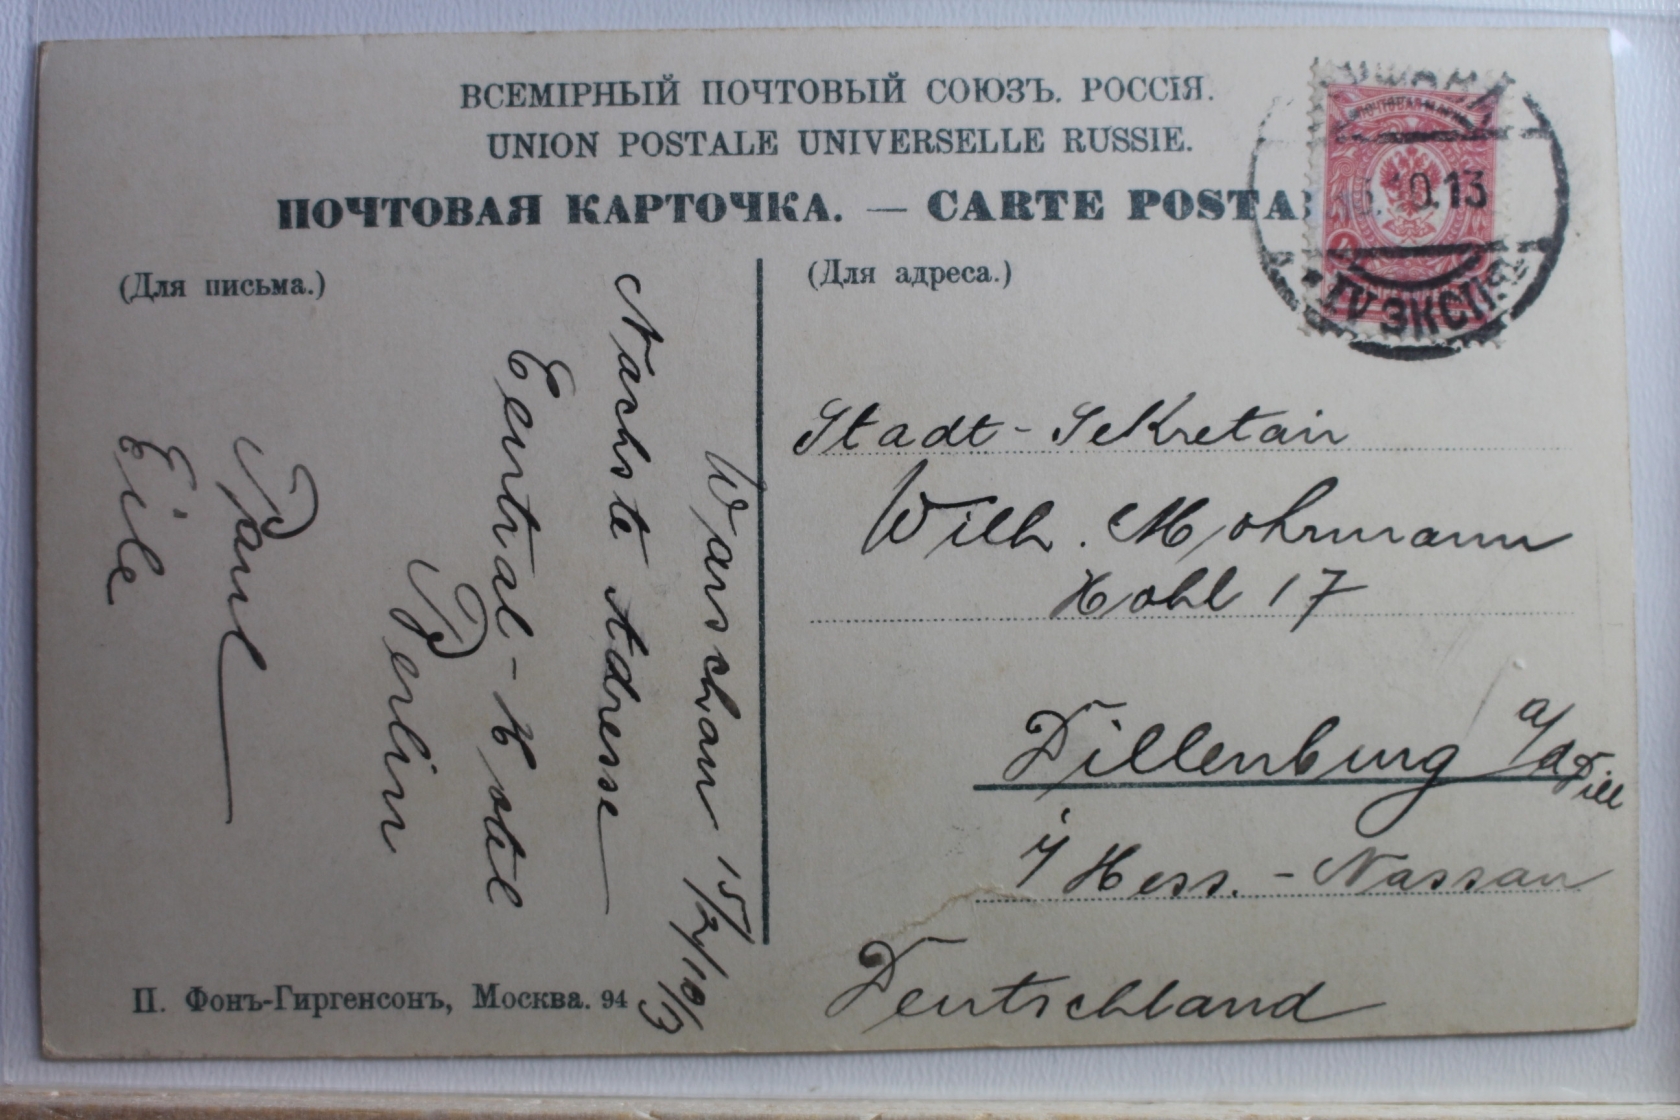 ВСЕМІРНЫЙ ПОЧТОВЫЙ СОЮЗЪ. РОССІЯ.
UNION POSTALE UNIVERSELLE RUSSIE.
ПОЧТОВАЯ КАРТОЧКА. — CARTE POSTA
(Для письма.)
(Для адреса.)
Warschau 15/2/10/3
Nächste Adresse
Central-Hotel
Berlin
Paul
Eile
П. Фонъ-Гиргенсонъ, Москва. 94
ПОЧТОВАЯ МАРКА
10.13
IV ЭКСП.
Stadt-Sekretair
Wilh. Mohrmann
Hohl 17
Dillenburg a/d Dill
i/ Hess.-Nassau
Deutschland